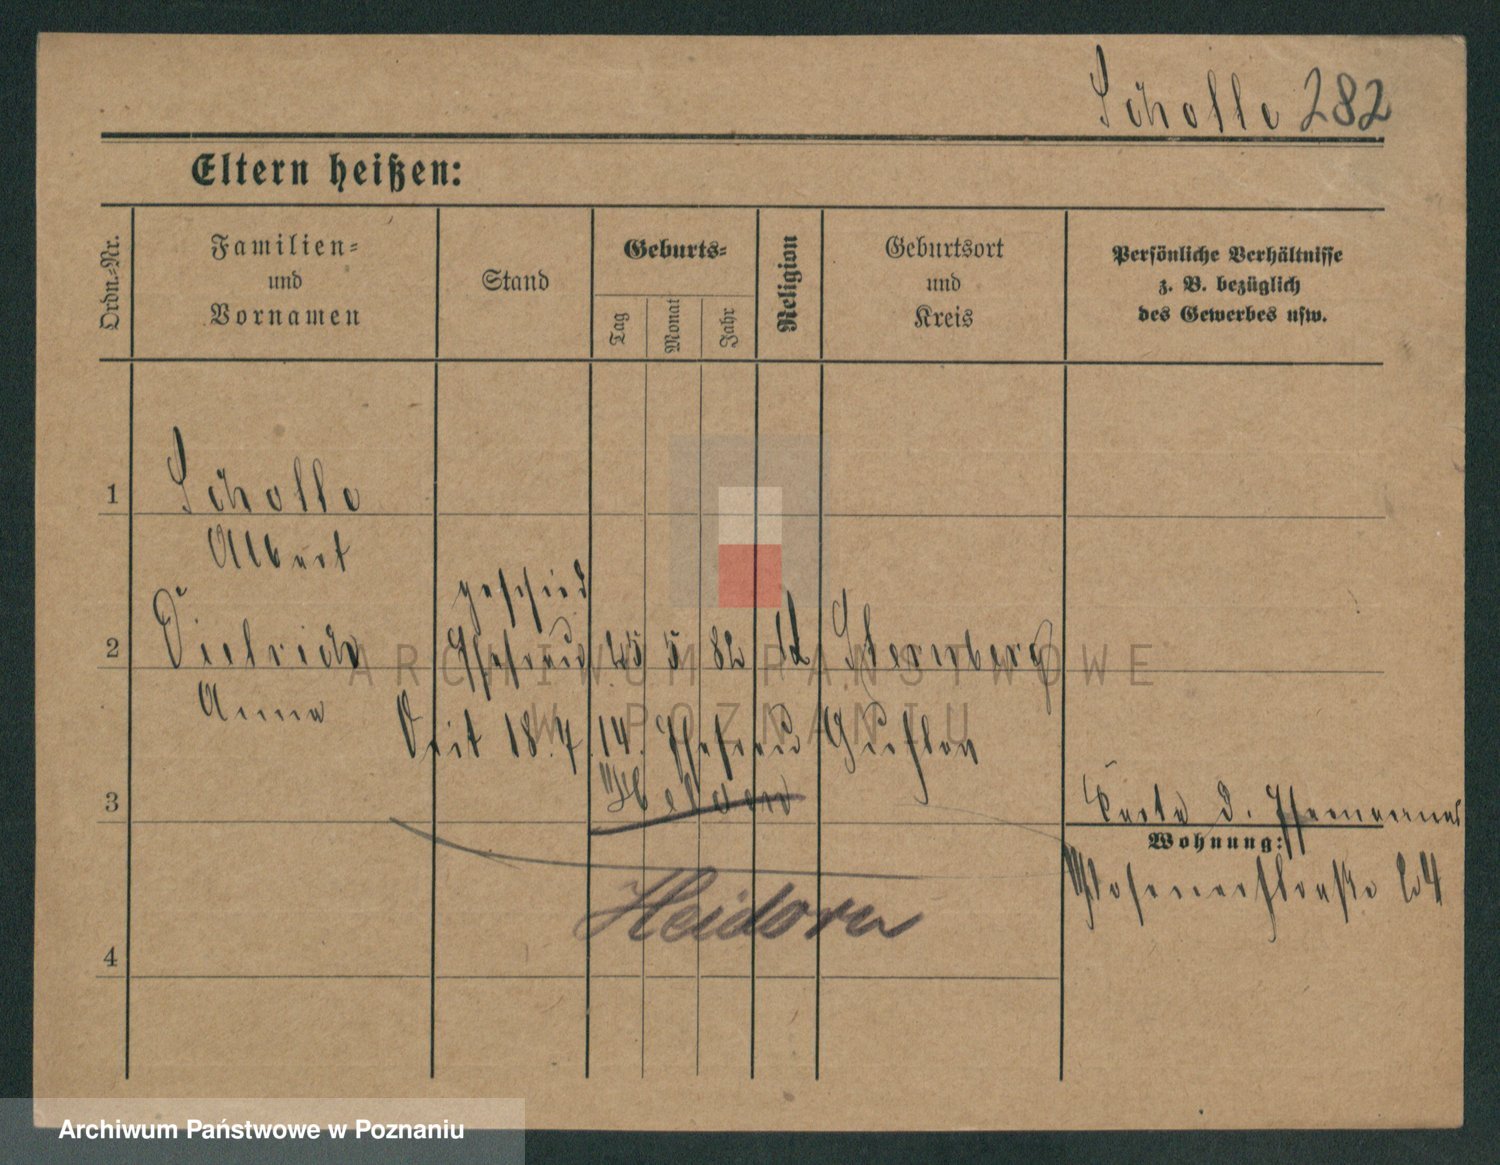 Scholle 282
Eltern heißen:
Ordn.-Nr.
Familien-
und
Vornamen
Stand
Geburts-
Tag
Monat
Jahr
Religion
Geburtsort
und
Kreis
Persönliche Verhältnisse
z. B. bezüglich
des Gewerbes usw.
1 Scholle
Albert
geschied
2 Dietrich Ehefrau 25 5 82 Sternberg
Anna
Seit 18.7.14. Ehefrau Gustav
3
Karte d. Ehemannes
Wohnung:
Posenerstraße
Heidorn
4
ARCHIWUM PAŃSTWOWE
W POZNANIU
Archiwum Państwowe w Poznaniu